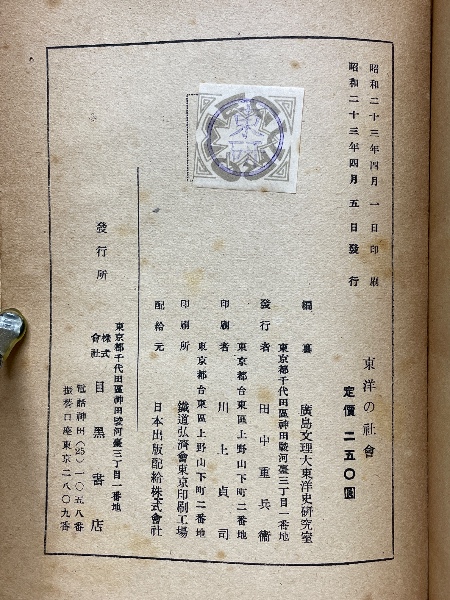 昭和二十三年四月一日印刷
昭和二十三年四月五日發行
東洋の社會
定價 二五〇圓
編纂 廣島文理大東洋史研究室
東京都千代田區神田駿河臺三丁目一番地
發行者 田中重兵衞
東京都台東區上野山下町二番地
印刷者 川上貞司
東京都台東區上野山下町二番地
印刷所 鐵道弘濟會東京印刷工場
配給元 日本出版配給株式會社
發行所
東京都千代田區神田駿河臺三丁目一番地
株式會社 目黑書店
電話神田(25)一〇五八番
振替口座東京二八〇九番